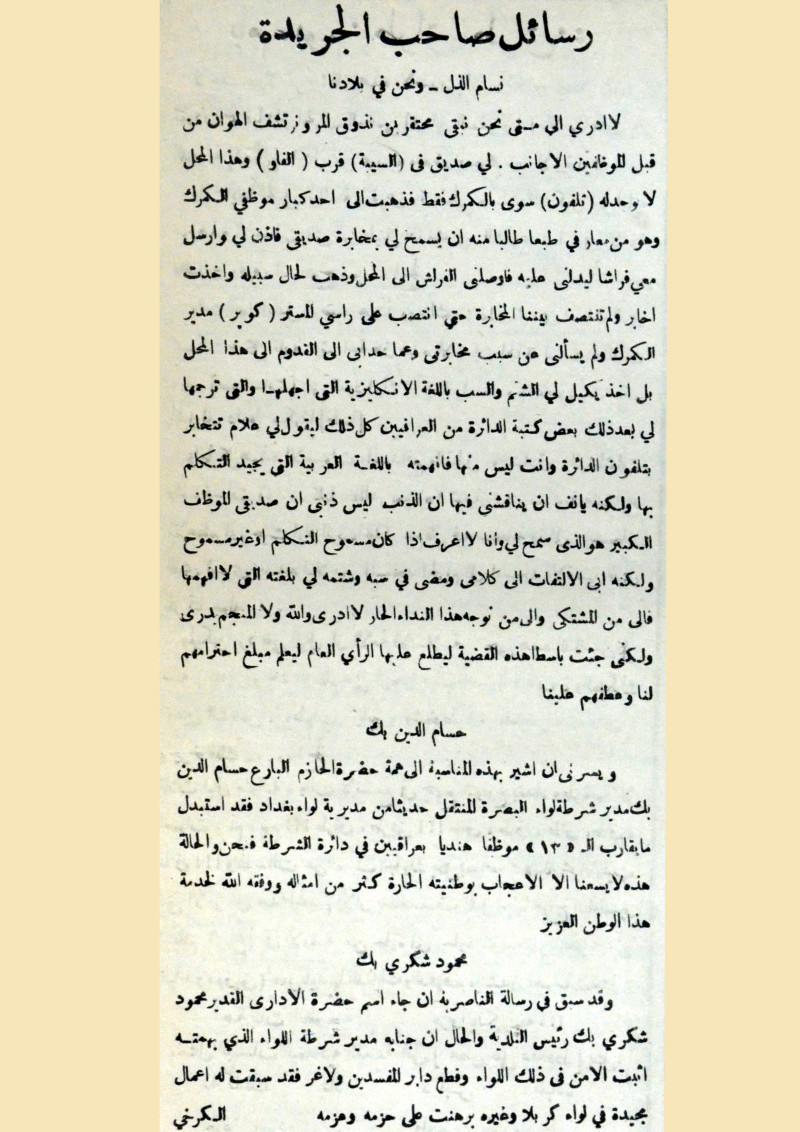 رسائل صاحب الجريدة
نسام الذل ـ ونحن في بلادنا
لا ادري الى متى نحن نبقى محتقرين نذوق المر ونرتشف الهوان من
قبل الموظفين الاجانب . لي صديق فى (السيبة) قرب ( الفاو ) وهذا المحل
لا وحدله (تلفون) سوى بالكمرك فقط فذهبت الى احد كبار موظفي الكمرك
وهو من معار في طبعا طالبا منه ان يسمح لي بمخابرة صديقى فاذن لي وارسل
معي فراشا ليدلنى عليه فاوصلنى الفراش الى المحل وذهب لحال سبيله واخذت
اخابر ولم تنتصف بيننا المخابرة حتى انتصب على راسي المستر ( كوبر ) مدير
الكمرك ولم يسألنى عن سبب مخابرتى وعما حدابى الى القدوم الى هذا المحل
بل اخذ يكيل لي الشتم والسب باللغة الانكليزية التى اجهلها والتى ترجمها
لي بعد ذلك بعض كتبة الدائرة من العراقيين كل ذلك ليقول لي علام تتخابر
بتلفون الدائرة وانت ليس منها فافهمته باللغة العربية التى يجيد التكلم
بها ولكنه يانف ان يناقشنى فيها ان الذنب ليس ذنبى ان صديقى الموظف
الكبير هو الذى سمح لي وأنا لا اعرف اذا كان مسموح التكلم او غير مسموح
ولكنه ابى الالتفات الى كلامى ومضى في سبه وشتمه لي بلغته التى لا افهمها
فالى من المشتكى والى من نوجه هذا النداء الحار لا ادرى والله ولا المنجم يدرى
ولكنى جئت باسطا هذه القضية ليطلع عليها الرأي العام ليعلم مبلغ احترامهم
لنا وعطفهم علينا
حسام الدين بك
ويسرنى ان اشير بهذه المناسبة الى همة حضرة الحازم البارع حسام الدين
بك مدير شرطة لواء البصرة المنتقل حديثا من مديرية لواء بغداد فقد استبدل
ما يقارب الـ «١٣» موظفا هنديا بعراقيين في دائرة الشرطة فنحن والحالة
هذه لا يسعنا الا الاعجاب بوطنيته الحارة كثر من امثاله ووفقه الله لخدمة
هذا الوطن العزيز
محمود شكري بك
وقد سبق في رسالة الناصرية ان جاء اسم حضرة الادارى القدير محمود
شكري بك رئيس البلدية والحال ان جنابه مدير شرطة اللواء الذي بهمته
اثبت الامن فى ذلك اللواء وقطع دابر المفسدين ولاغر فقد سبقت له اعمال
مجيدة في لواء كربلا وغيره برهنت على حزمه وعزمه الكرخي